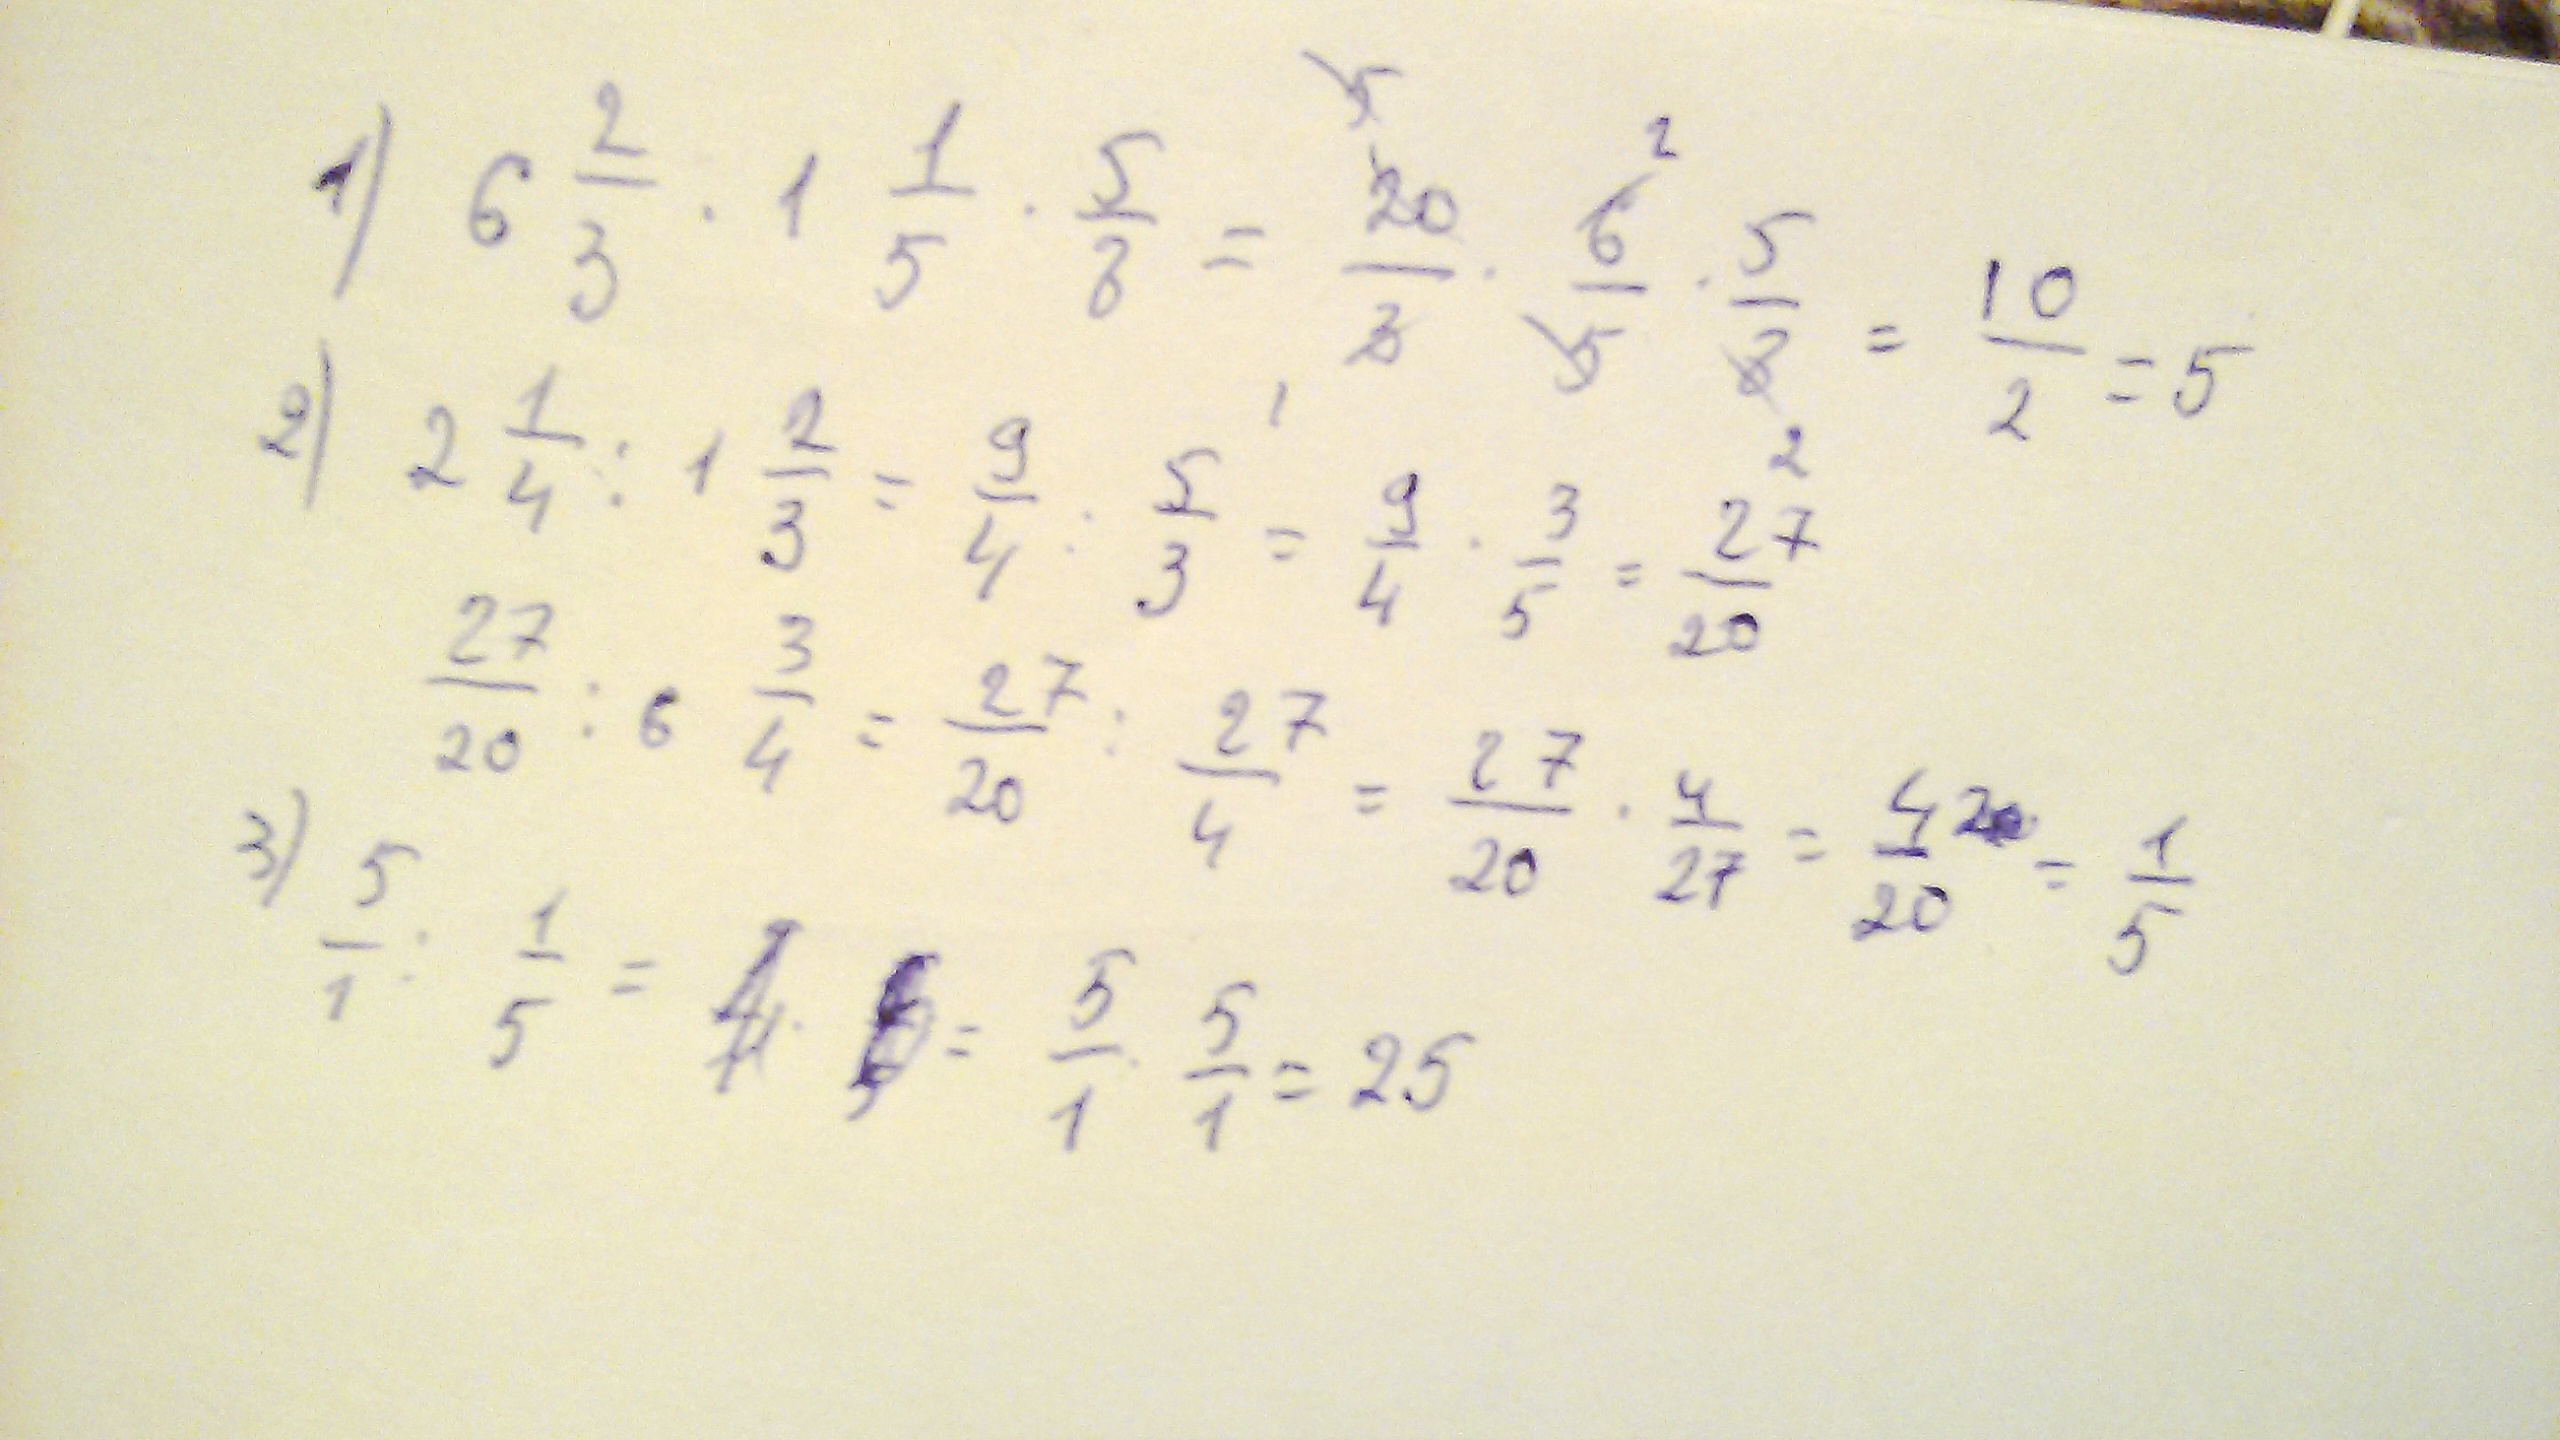 1) 6 2/3 · 1 1/5 · 5/8 = 20/3 · 6/5 · 5/8 = 10/2 = 5
5 2 2
2) 2 1/4 : 1 2/3 = 9/4 : 5/3 = 9/4 · 3/5 = 27/20
27/20 : 6 3/4 = 27/20 : 27/4 = 27/20 · 4/27 = 4/20 = 1/5
3) 5/1 : 1/5 = = 5/1 · 5/1 = 25